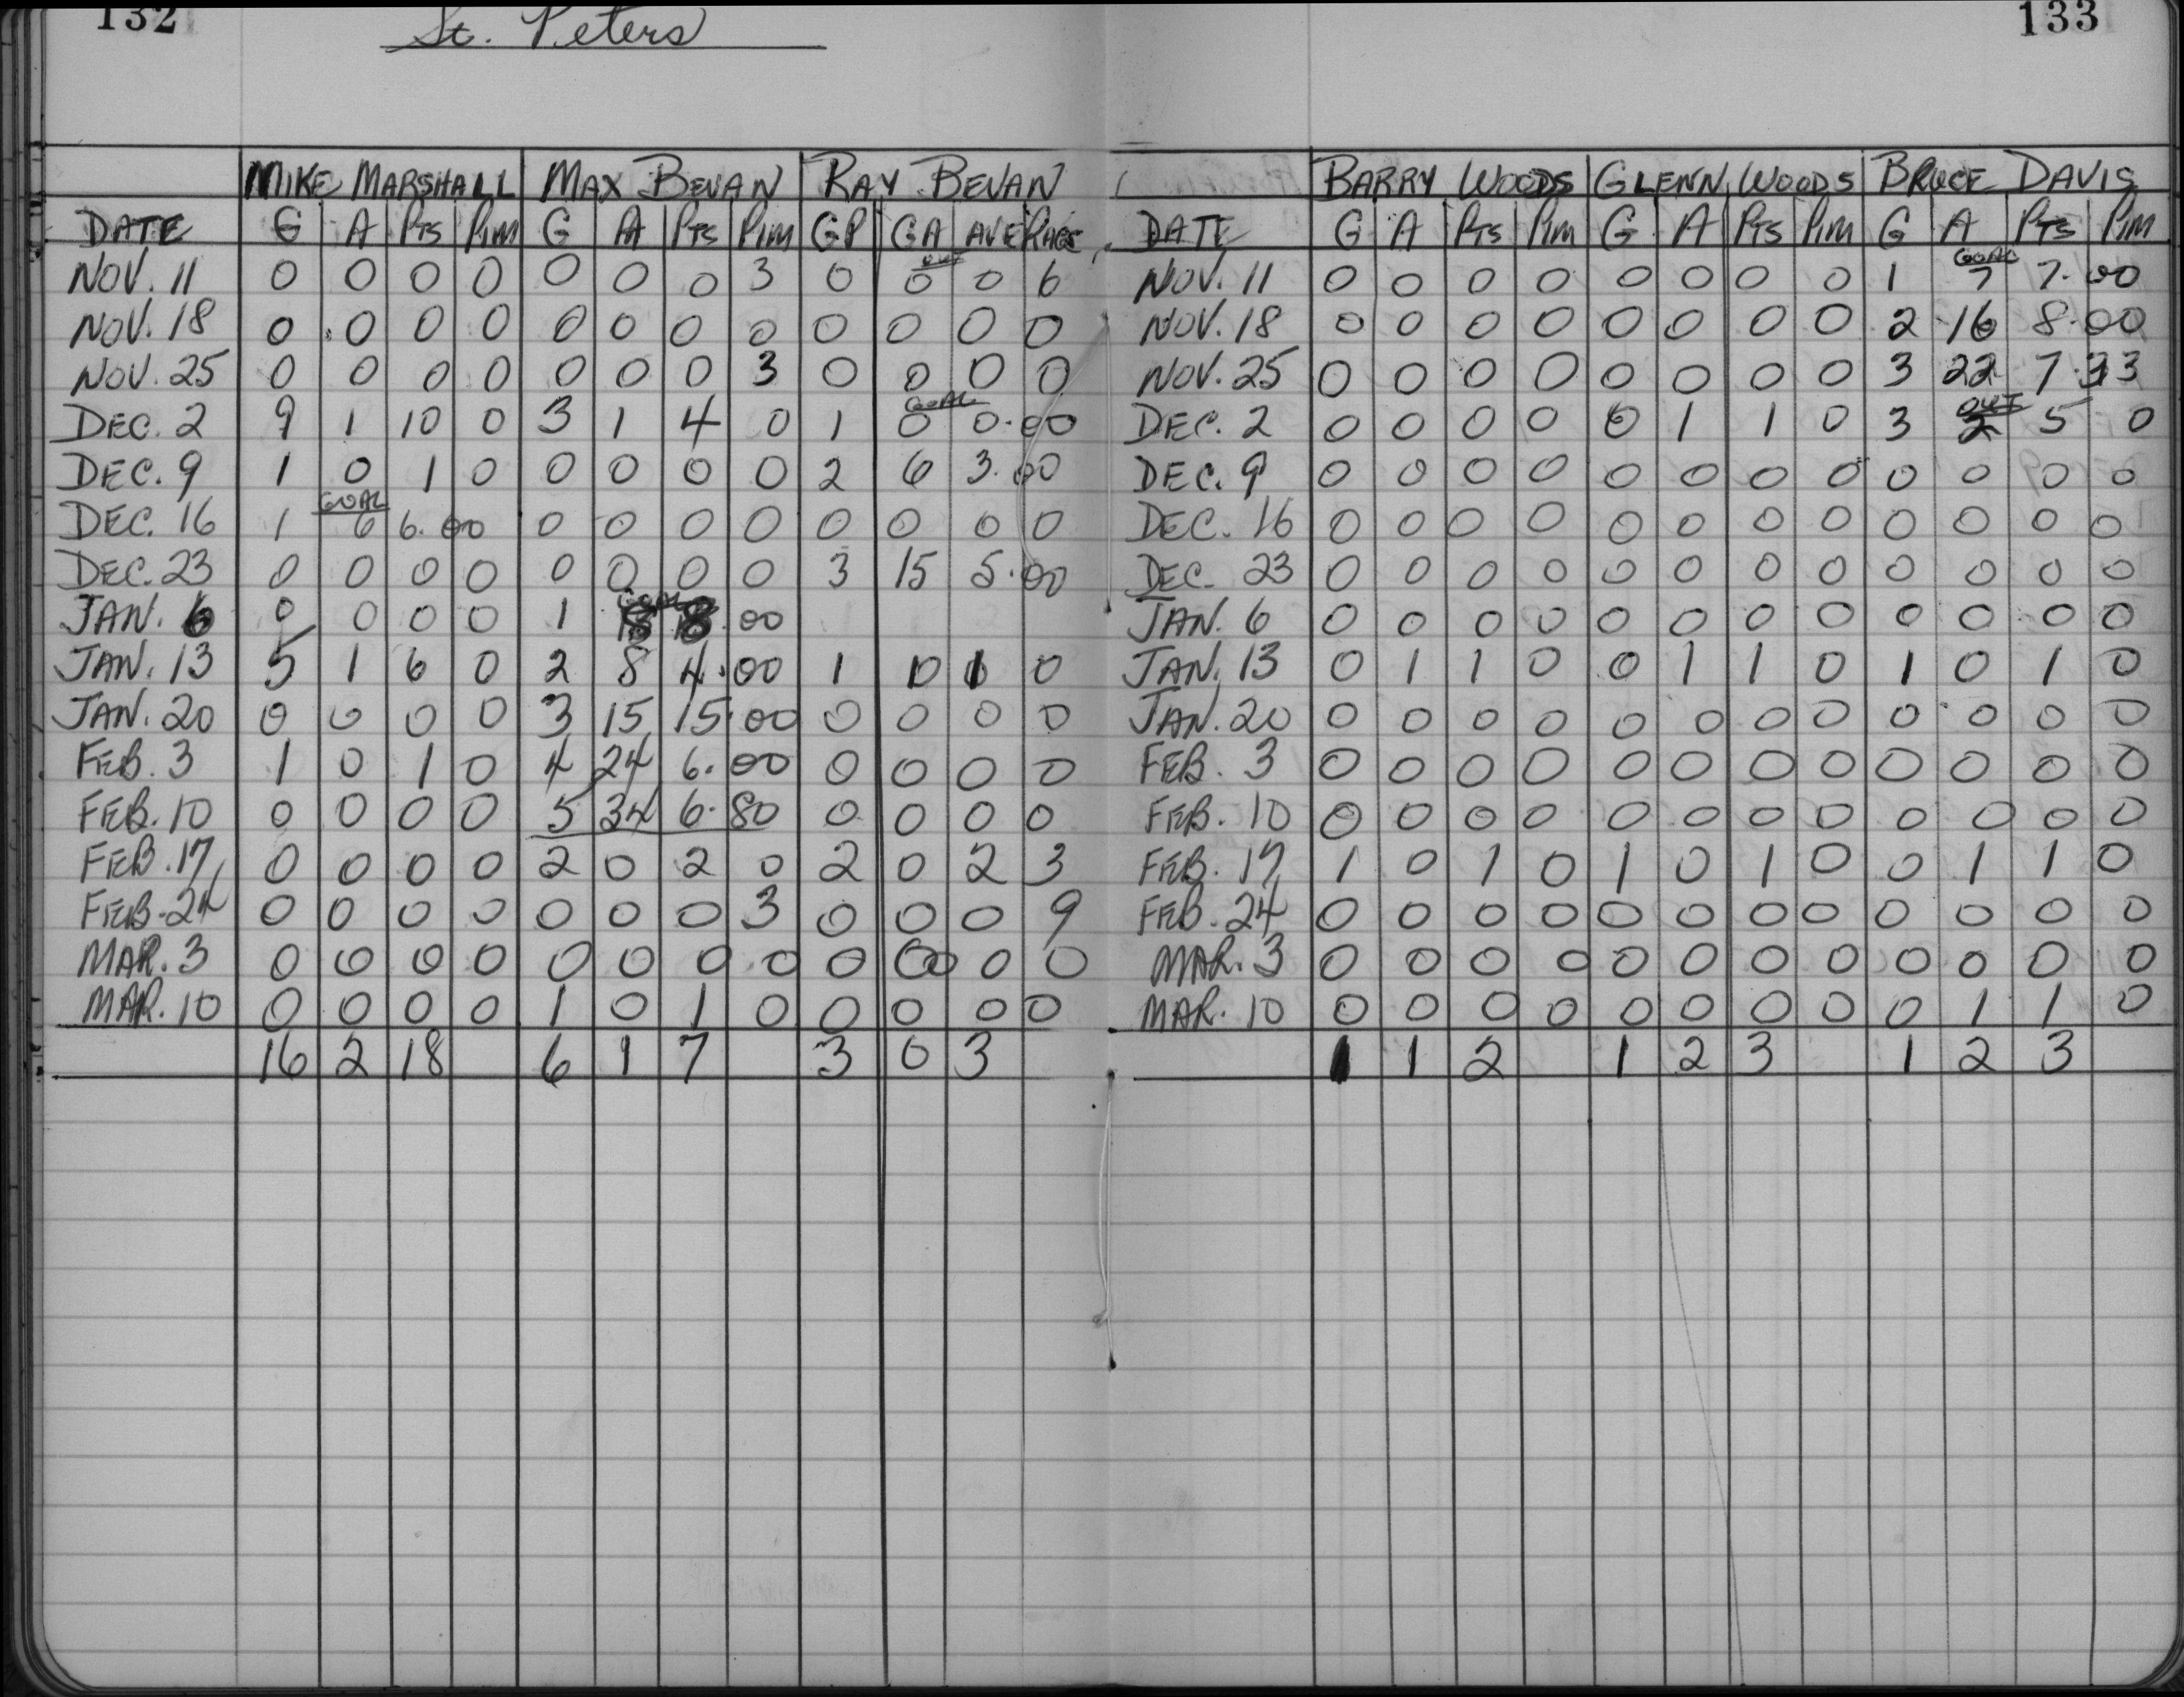 132
St. Peters
133
MIKE MARSHALL MAX BEVAN RAY BEVAN
DATE G A PTS PIM G A PTS PIM GP GA AVERAGE
OUT
NOV. 11 0 0 0 0 0 0 0 3 0 0 0 6
NOV. 18 0 0 0 0 0 0 0 0 0 0 0 0
NOV. 25 0 0 0 0 0 0 0 3 0 0 0 0
GOAL
DEC. 2 9 1 10 0 3 1 4 0 1 0 0.00
DEC. 9 1 0 1 0 0 0 0 0 2 6 3.00
GOAL
DEC. 16 1 6 6.00 0 0 0 0 0 0 0 0
DEC. 23 0 0 0 0 0 0 0 0 3 15 5.00
GOAL
JAN. 6 0 0 0 0 1 .00
JAN. 13 5 1 6 0 2 8 4.00 1 0 1 0
JAN. 20 0 0 0 0 3 15 15.00 0 0 0 0
FEB. 3 1 0 1 0 4 24 6.00 0 0 0 0
FEB. 10 0 0 0 0 5 34 6.80 0 0 0 0
FEB. 17 0 0 0 0 2 0 2 0 2 0 2 3
FEB. 24 0 0 0 0 0 0 0 3 0 0 0 9
MAR. 3 0 0 0 0 0 0 0 0 0 0 0 0
MAR. 10 0 0 0 0 1 0 1 0 0 0 0 0
16 2 18 6 1 7 3 0 3
BARRY WOODS GLENN WOODS BRUCE DAVIS
DATE G A PTS PIM G A PTS PIM G A PTS PIM
GOAL
NOV. 11 0 0 0 0 0 0 0 0 1 7 7.00
NOV. 18 0 0 0 0 0 0 0 0 2 16 8.00
NOV. 25 0 0 0 0 0 0 0 0 3 22 7.33
OUT
DEC. 2 0 0 0 0 0 1 1 0 3 2 5 0
DEC. 9 0 0 0 0 0 0 0 0 0 0 0 0
DEC. 16 0 0 0 0 0 0 0 0 0 0 0 0
DEC. 23 0 0 0 0 0 0 0 0 0 0 0 0
JAN. 6 0 0 0 0 0 0 0 0 0 0 0 0
JAN. 13 0 1 1 0 0 1 1 0 1 0 1 0
JAN. 20 0 0 0 0 0 0 0 0 0 0 0 0
FEB. 3 0 0 0 0 0 0 0 0 0 0 0 0
FEB. 10 0 0 0 0 0 0 0 0 0 0 0 0
FEB. 17 1 0 1 0 1 0 1 0 0 1 1 0
FEB. 24 0 0 0 0 0 0 0 0 0 0 0 0
MAR. 3 0 0 0 0 0 0 0 0 0 0 0 0
MAR. 10 0 0 0 0 0 0 0 0 0 1 1 0
1 1 2 1 2 3 1 2 3